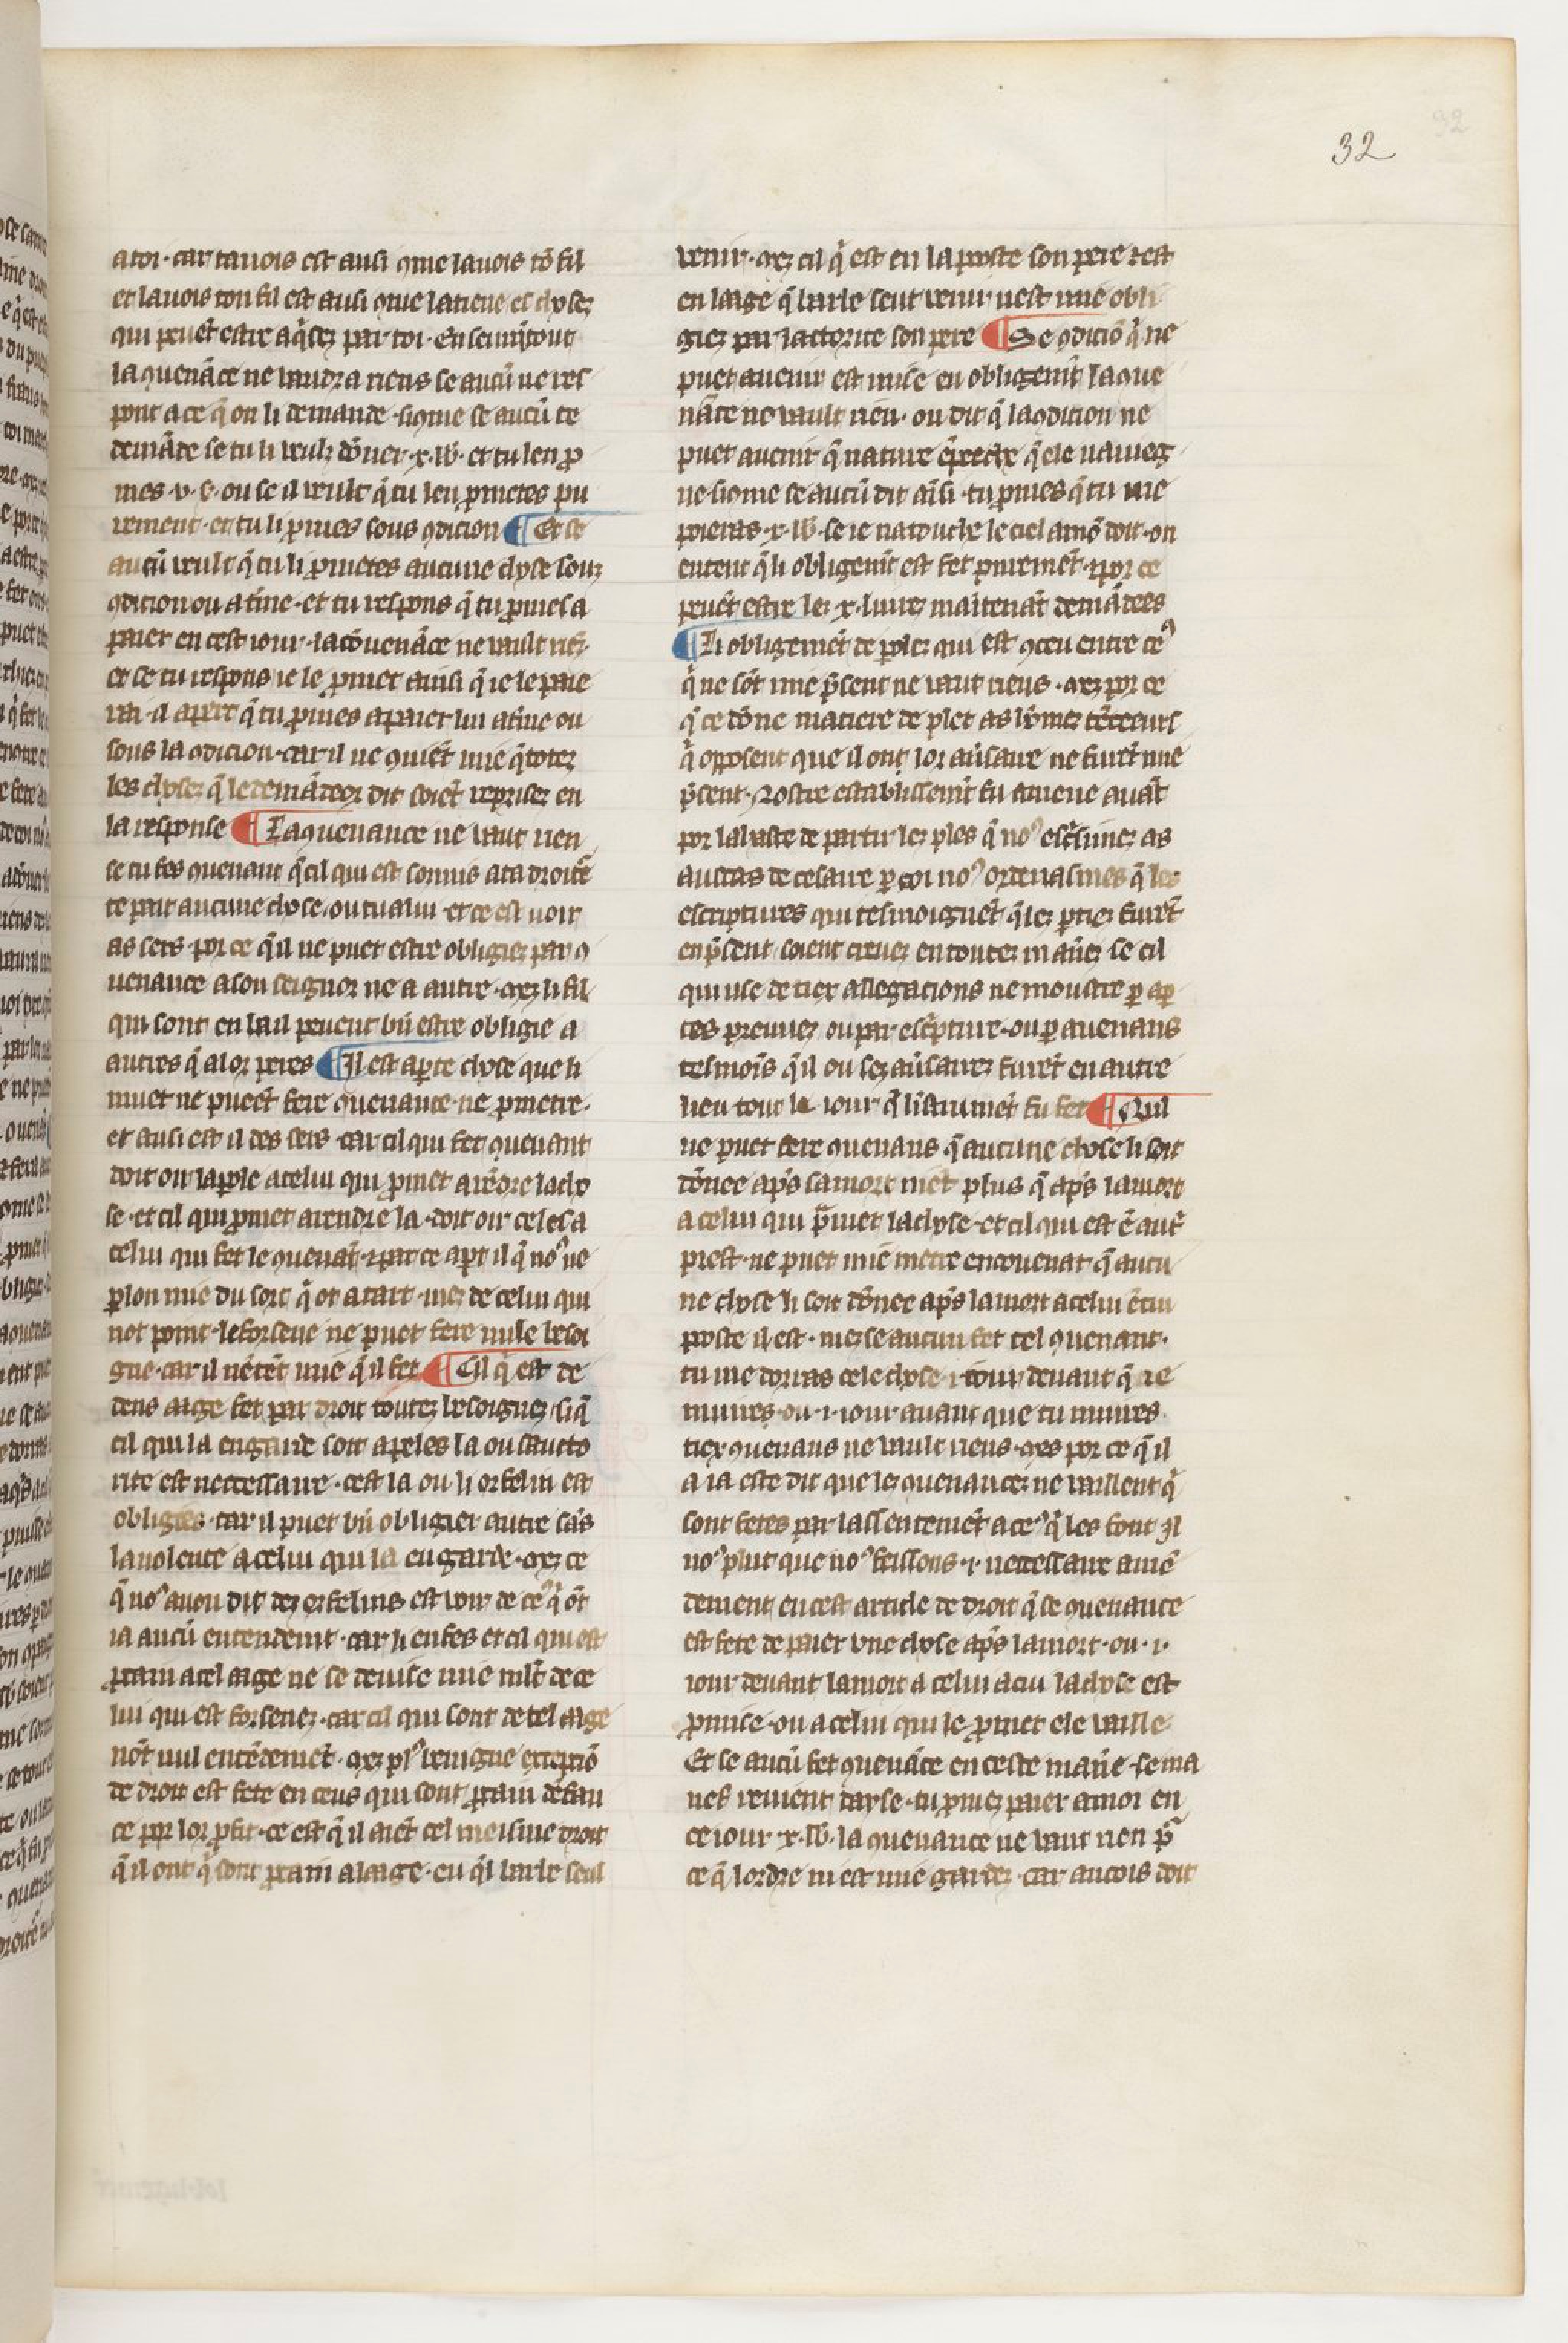 32
a toi · car ta uois est ausi ꝯme la uois tō fil
et la uois ton fil est ausi ꝯme la tieue es choses
qui peuēt estre aq̄ses par toi · Enseurq̄tout
la ꝯuenāce ne uaudra riens se aucū ne res
pont a ce q̄ on li demande · si ꝯme se aucū te
demāde se tu li veulz dōner · x · lb · et tu len ꝓ
mes · v · s · ou se il veult q̄ tu len ꝓmetes pu
rement · et tu li ꝓmes sous ꝯdicion ¶ Et se
aucū veult q̄ tu li ꝓmetes aucune chose souz
ꝯdicion ou a t̄me · et tu respons q̄ tu ꝓmes a
paier en cest iour · la cōuenāce ne vault riēs ·
et se tu respons ie le ꝓmet ausi q̄ ie le paie
rai · il apert q̄ tu ꝓmes a paier lui a t̄me ou
sous la ꝯdicion · car il ne ꝯuiēt mie q̄ totez
les choses q̄ le demādeor dit soiēt reprises en
la response ¶ La ꝯuenance ne vaut rien
se tu fes ꝯuenant q̄ cil qui est sommis a ta droitē
te pait aucune chose · ou tu a lui · et ce est uoir
as sers · por ce q̄ il ne puet estre obligiez par ꝯ
uenance a son seignor ne a autre · mez li fil
qui sont en bail peuent bn̄ estre obligie a
autres q̄ a lor peres ¶ Il est aperte chose que li
muet ne pueēt fere ꝯuenance · ne ꝓmetre ·
et ausi est il des sers · car cil qui fet ꝯuenant
doit oir la ꝑole a celui qui ꝓmet a rēdre la cho
se · et cil qui ꝓmet a rendre la · doit oir celes a
celui qui fet le ꝯuenāt · ⁊ par ce apt il q̄ noꝰ ne
ꝑlon mie du sort q̄ ot a tart · mez de celui qui
not point · le forsene ne puet fere nule besoi
gne · car il nētēt mie q̄ il fet ¶ Cil q̄ est de
dens aage fet par droit toutez besoignez · si q̄
cil qui la en garde soit apeles la ou laucto
rite est neccessaire · cest la ou li orfelin est
obligies · car il puet bn̄ obligier autre sās
la uolente a celui qui la en garde · mez ce
q̄ noꝰ auon dit dez orfelins est voir de ceꝰ q̄ ōt
ia aucū entendemt · car li enfes et cil qui est
ꝓcain a cel aage ne se deuise mie mlt̄ de ce
lui qui est forsenez · car cil qui sont de tel aage
nōt nul entēdemēt · mez plꝰ benigne exceptiō
de droit est fete en ceus qui sont ꝓcain dēfan
ce por lor ꝓfit · ce est q̄ il aiēt cel meisme droit
q̄ il ont q̄ sont ꝓcain a laage · en q̄l barbe seul
venir · mez cil q̄ est en la poste son pere ⁊ est
en laage q̄ barbe seut venir nest mie obli
giez par lactorite son pere ¶ Se ꝯditiō q̄ ne
puet auenir est mise en obligemt̄ la ꝯue
nāce ne vault rien · on dit q̄ la ꝯdition ne
puet auenir q̄ nature ēpeeche q̄ ele nauieg
ne · si ꝯme se aucū dit aīsi · tu ꝓmes q̄ tu me
poieras · x · lb · se ie natouche le ciel a mō doit · on
entent q̄ li obligemt̄ est fet puremēt · ⁊ por ce
peuēt estre lez · x · liurez maītenāt demādees
¶ Li obligemēt de ꝑoles qui est ꝯceu entre ceꝰ
q̄ ne sōt mie p̄sent ne vaut riens · mez por ce
q̄ ce dōne matiere de plet as hōmez tēceeurs
q̄ opposent que il ont lor aūsaire ne furēt mie
p̄sent · Nostre establissemt̄ fu auene auāt
por la haste de partir lez ples q̄ noꝰ escsimez as
aucras de cesaire ꝑ qoi noꝰ ordenasmes q̄ les
escriptures qui tesmoignēt q̄ lez ꝑties furēt
en p̄sent soient creuez en toutez man̄ez se cil
qui use de tiex allegacions ne moustre ꝑ aꝑ
tes preuuez ou par esc̄pture · ou ꝑ auenans
tesmoīs q̄ il ou sez aūsairez furēt en autre
lieu tout le iour q̄ listrumēt fu fet ¶ Nul
ne puet fere ꝯuenans q̄ aucune chose li soit
dōnee ap̄s sa mort niēt plus q̄ ap̄s la mort
a celui qui p̄met la chose · et cil qui est ē aut̄
prest · ne puet mie metre en couenat · q̄ aucu
ne chose li soit dōnee ap̄s la mort a celui ē cui
poste il est · mez se aucun fet tel ꝯuenant ·
tu me donras cele chose · i · iour deuant q̄ ie
muires · ou · i · iour auant que tu muires ·
tiex ꝯuenans ne vault riens · mes por ce q̄ il
a ia este dit que lez ꝯuenancez ne vaillent q̄
sont fetes par lassentemēt a ceꝰ q̄ les font Il
noꝰ plut que noꝰ feissons · i · necessaire amē
dement en cest article de droit q̄ se ꝯuenance
est fete de paier vne chose ap̄s la mort · ou · i ·
iour deuant la mort a celui a cui la chose est
ꝓmise · ou a celui qui le ꝓmet ele vaille
Et se aucū fet ꝯuenāce en ceste man̄ie · se ma
nef reuient dayse · tu ꝓmez paier a moi en
ce iour · x · lb · la ꝯuenance ne vaut rien p̄
ce q̄ lordre ni est mie gardez · car ancois doit